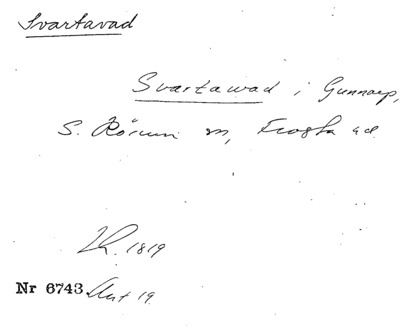 Svartavad
Svartawad i Gunnarp,
S. Rörum sn, Frosta hd
Kr. 1819
Nr 6743 Akt 19